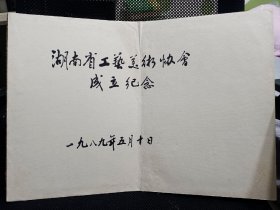 湖南省工藝美術协會
成立纪念
一九八九年五月十日